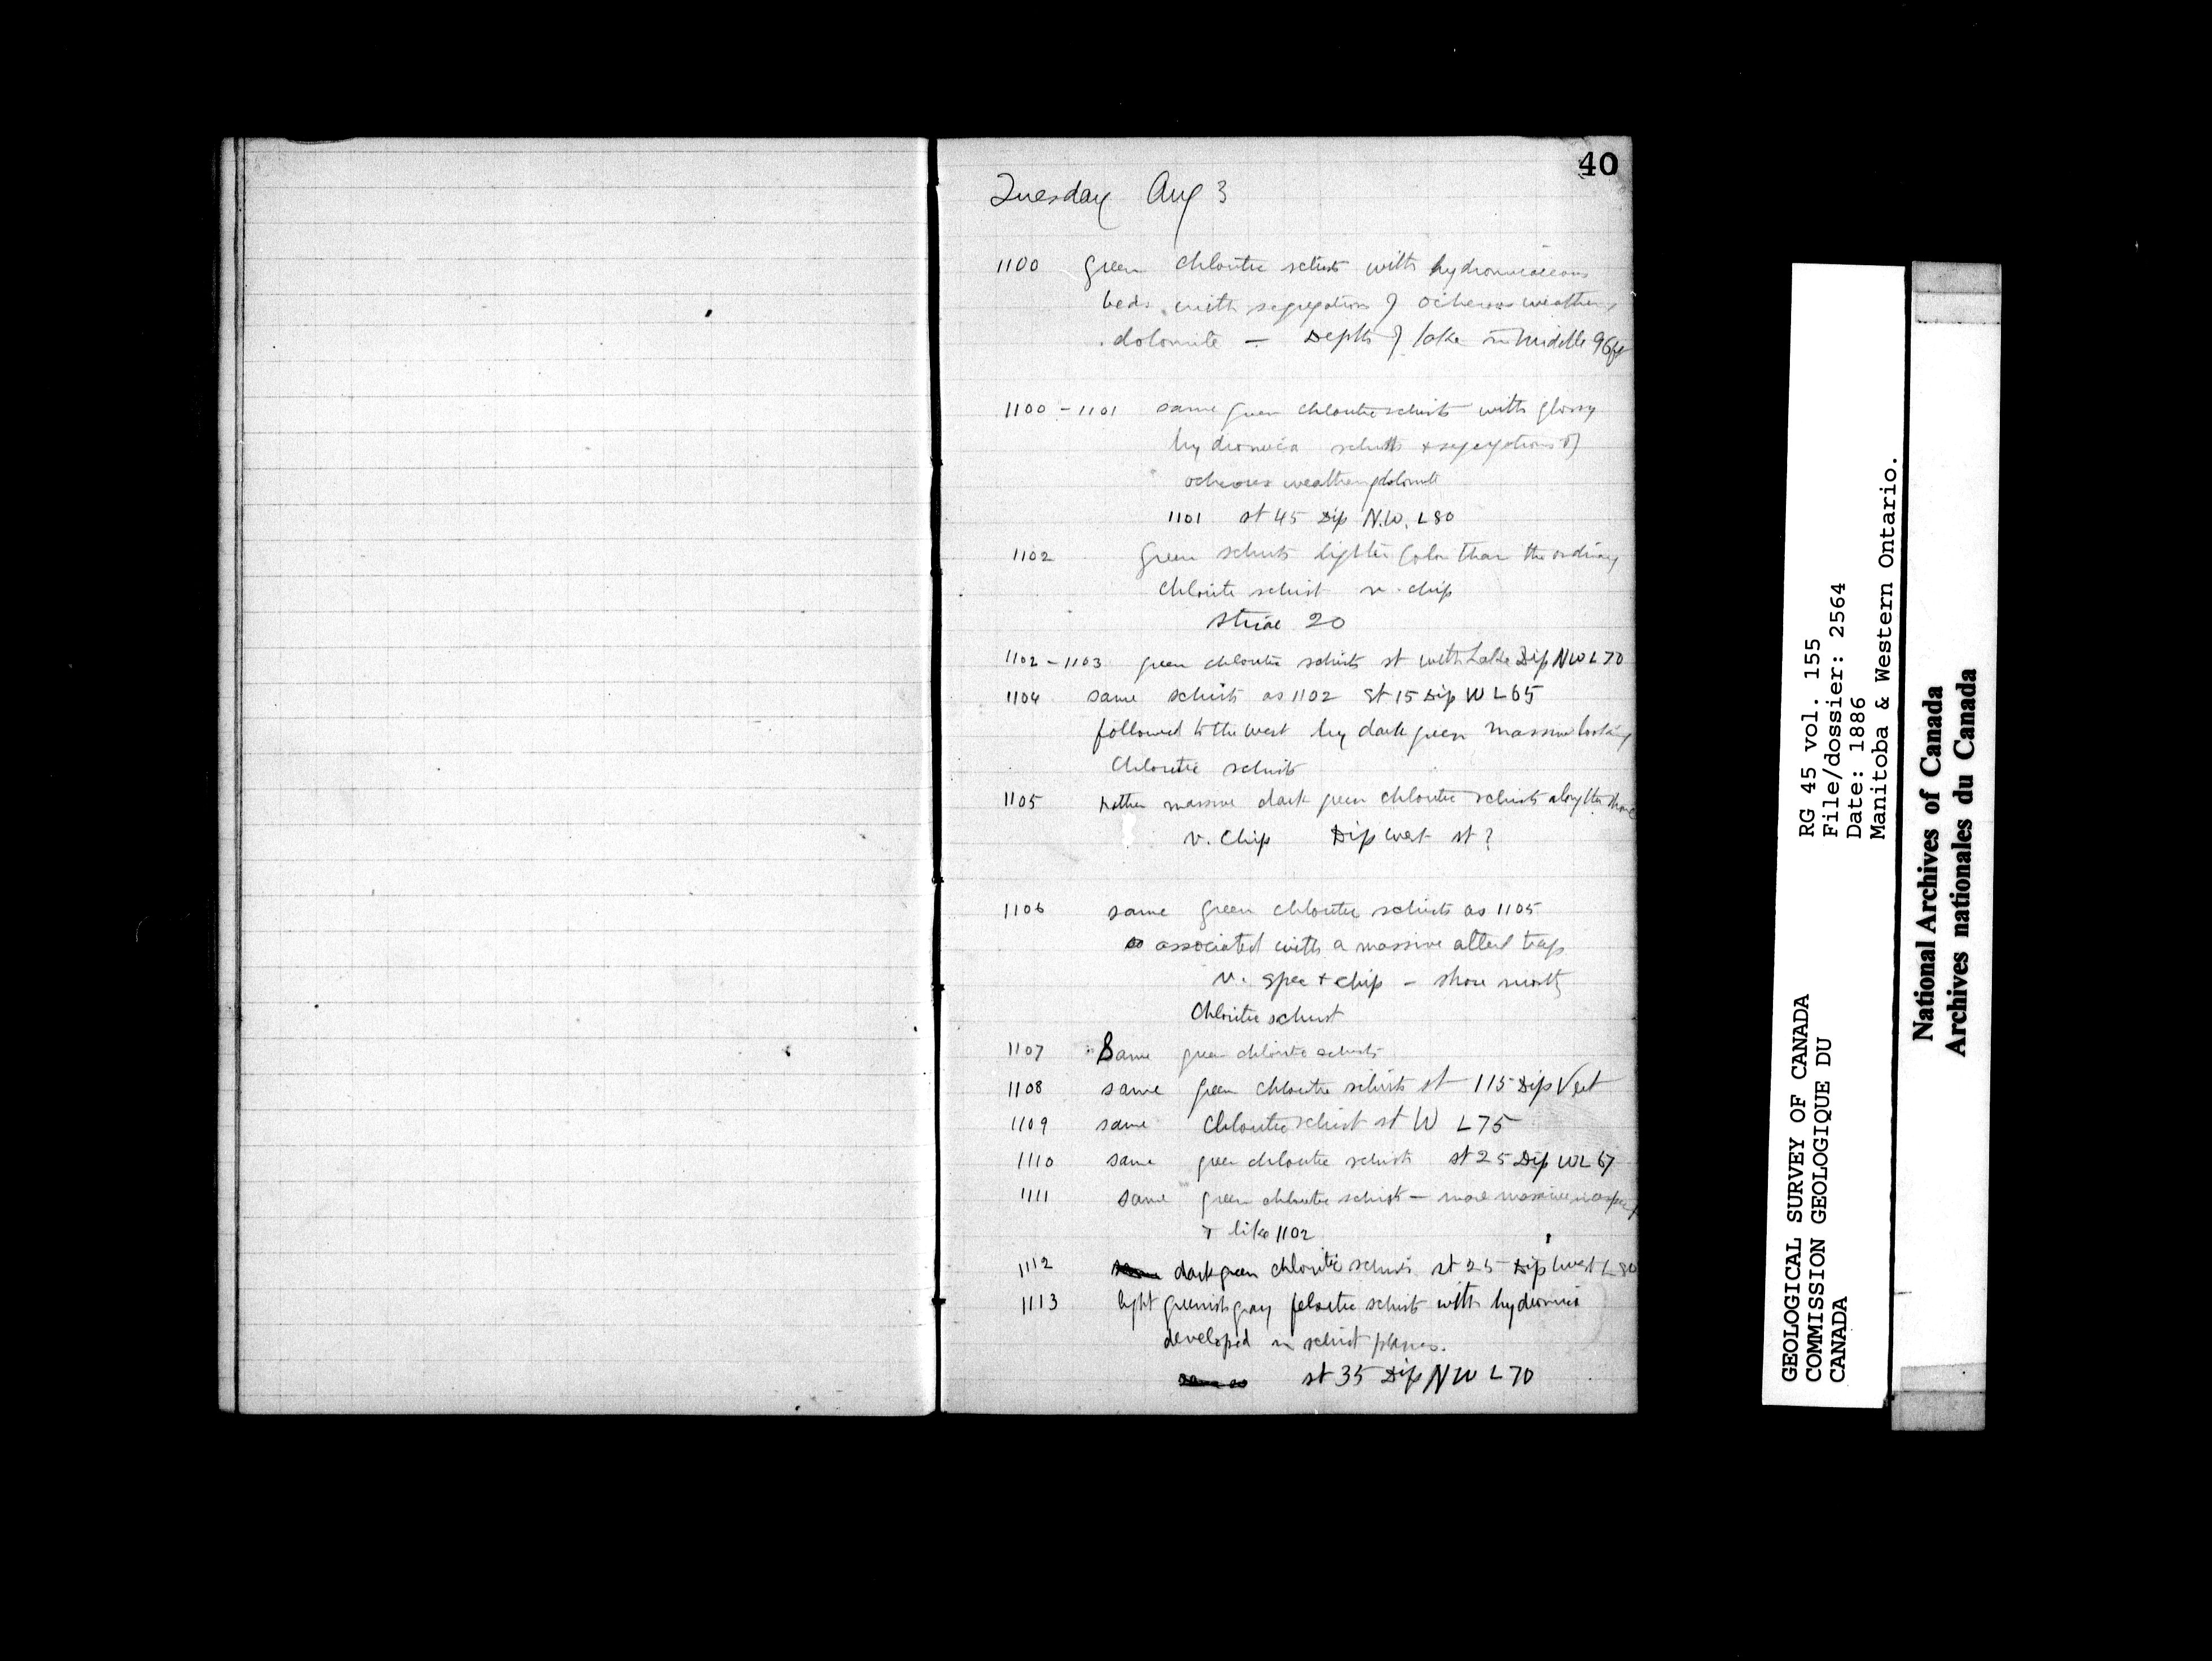 40
Tuesday Aug 3
1100 green chloritic schists with hydromicaceous
beds. with segregations of ocherous weathering
dolomite — Depth of lake in middle 96ft
1100 - 1101 same green chloritic schists with glossy
hydromica schists & segregations of
ocherous weathering dolomite
1101 st 45 Dip N.W. L 80
1102 green schists lighter color than the ordinary
chlorite schist v. chip
striae 20
1102 - 1103 green chloritic schists st with Lake Dip NW L 70
1104 same schists as 1102 st 15 Dip W L 65
followed to the west by dark green massive looking
chloritic schists
1105 rather massive dark green chloritic schists along the shore
v. chip Dip west st ?
1106 same green chloritic schists as 1105
associated with a massive altered trap
v. spec & chip - shore mostly
chloritic schist
1107 Same green chlorite schists
1108 same green chloritic schists st 115 Dip Vert
1109 same chloritic schist st W L 75
1110 same green chloritic schists st 25 Dip W L 67
1111 same green chloritic schist — more massive in aspect
& like 1102
1112 dark green chloritic schists st 25 Dip West L 80
1113 light greenish gray felsitic schists with hydromica
developed in schist planes.
same as st 35 Dip NW L 70
GEOLOGICAL SURVEY OF CANADA
COMMISSION GEOLOGIQUE DU
CANADA
RG 45 vol. 155
File/dossier: 2564
Date: 1886
Manitoba & Western Ontario.
National Archives of Canada
Archives nationales du Canada